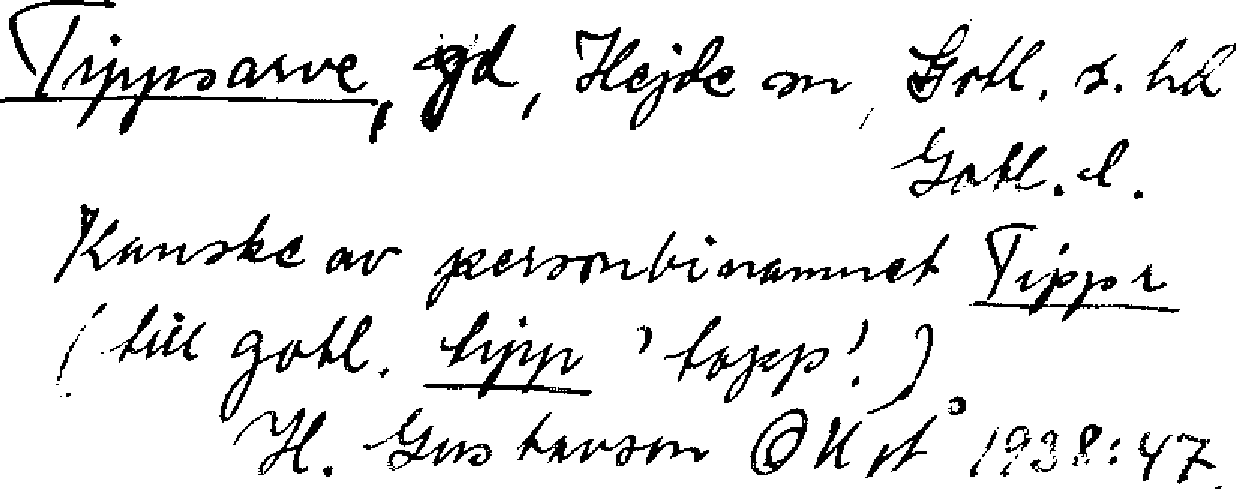 Tippsarve, gd, Hejde sn, Gotl. s. hd
Gotl. l.
Kanske av personbinamnet Tippr
(till gotl. tipp 'topp'.)
H. Gustavson 1938:47.